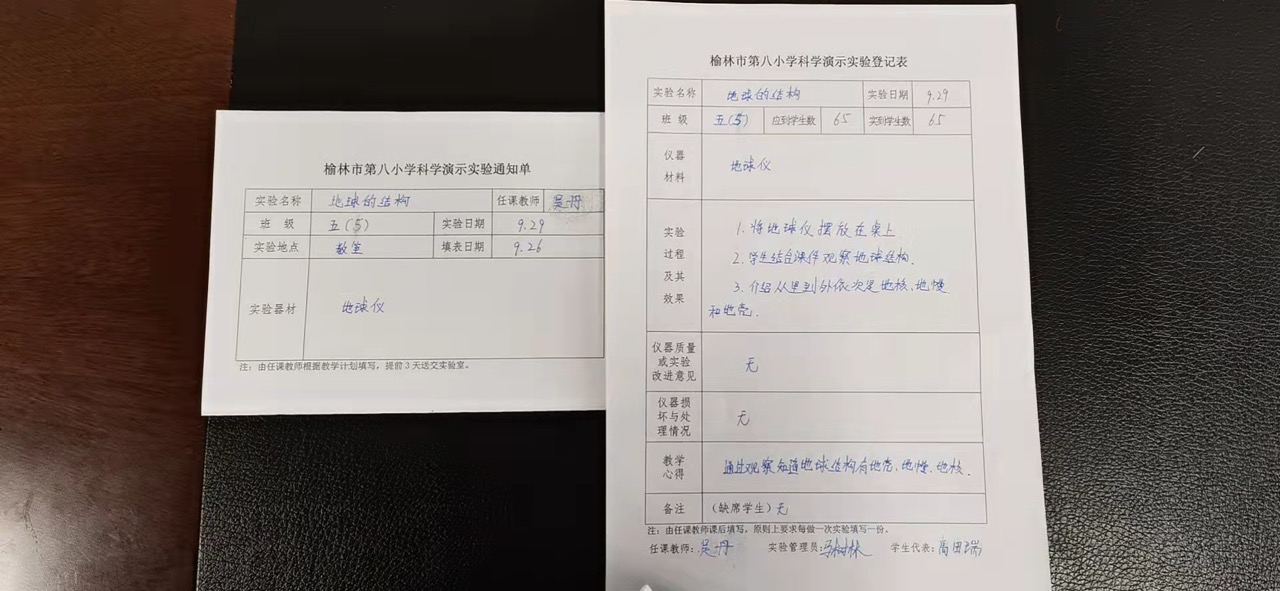 榆林市第八小学科学演示实验通知单
实验名称 地球的结构 任课教师 吴丹
班 级 五(5) 实验日期 9.29
实验地点 教室 填表日期 9.26
实验器材 地球仪
注:由任课教师根据教学计划填写,提前3天送交实验室。
榆林市第八小学科学演示实验登记表
实验名称 地球的结构 实验日期 9.29
班 级 五(5) 应到学生数 65 实到学生数 65
仪器
材料
地球仪
实验
过程
及其
效果
1. 将地球仪摆放在桌上.
2. 学生结合课件观察地球结构.
3. 介绍从里到外依次是地核、地慢
和地壳.
仪器质量
或实验
改进意见
无
仪器损
坏与处
理情况
无
教学
心得
通过观察知道地球结构有地壳、地慢、地核.
备注 (缺席学生)无
注:由任课教师课后填写,原则上要求每做一次实验填写一份。
任课教师:吴丹 实验管理员: 学生代表:高田瑞